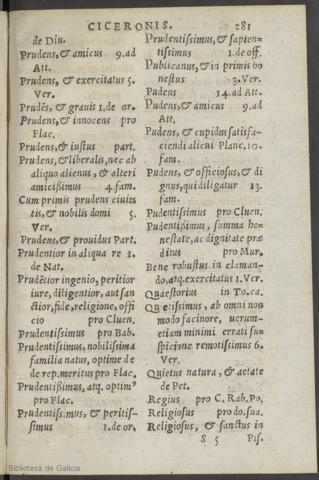 CICERONIS.
281
de Diu.
Prudens, & amicus 9.ad
Att.
Prudens, & exercitatus 5.
Ver.
Prudēs, & grauis 1.de or.
Prudens, & innocens pro
Flac.
Prudens, & iustus part.
Prudens, & liberalis, nec ab
aliquo alienus, & alteri
amicißimus 4.fam.
Cum primis prudens ciuita
tis, & nobilis domi 5.
Ver.
Prudens, & prouidus Part.
Prudentior in aliqua re 1.
de Nat.
Prudētior ingenio, peritior
iure, diligentior, aut san
ctior, fide, religione, offi
cio pro Cluen.
Prudentissimus pro Bab.
Prudentissimus, nobilissima
familia natus, optime de
de rep.meritus pro Flac.
Prudentißimus, atq. optim⁹
pro Flac.
Prudentissimus, & peritis-
simus 1.de or.
Prudentissimus, & sapten-
tissimus 1.de off.
Publicanus, & in primis ho
nestus 3.Ver.
Pudens 14.ad Att.
Pudens, & amicus 9.ad
Att.
Pudens, & cupidus satisfa-
ciendi alicui Planc. 10.
fam.
Pudens, & officiosus, & di
gnus, qui diligatur 13.
fam.
Pudentissimus pro Cluen.
Pudentißimus, summa ho-
nestate, ac dignitate præ
ditus pro Mur.
Bene robustus in claman-
do, atq. exercitatus 1.Ver.
Quæstorius in To.ca.
Quietissimus, ab omni non
modo facinore, uerum-
etiam minimi errati su-
spicione remotissimus 6.
Ver.
Quietus natura, & aetate
de Pet.
Regius pro C. Rab. Po.
Religiosus pro do.sua.
Religiosus, & sanctus in
S 5 Pis.
Biblioteca de Galicia